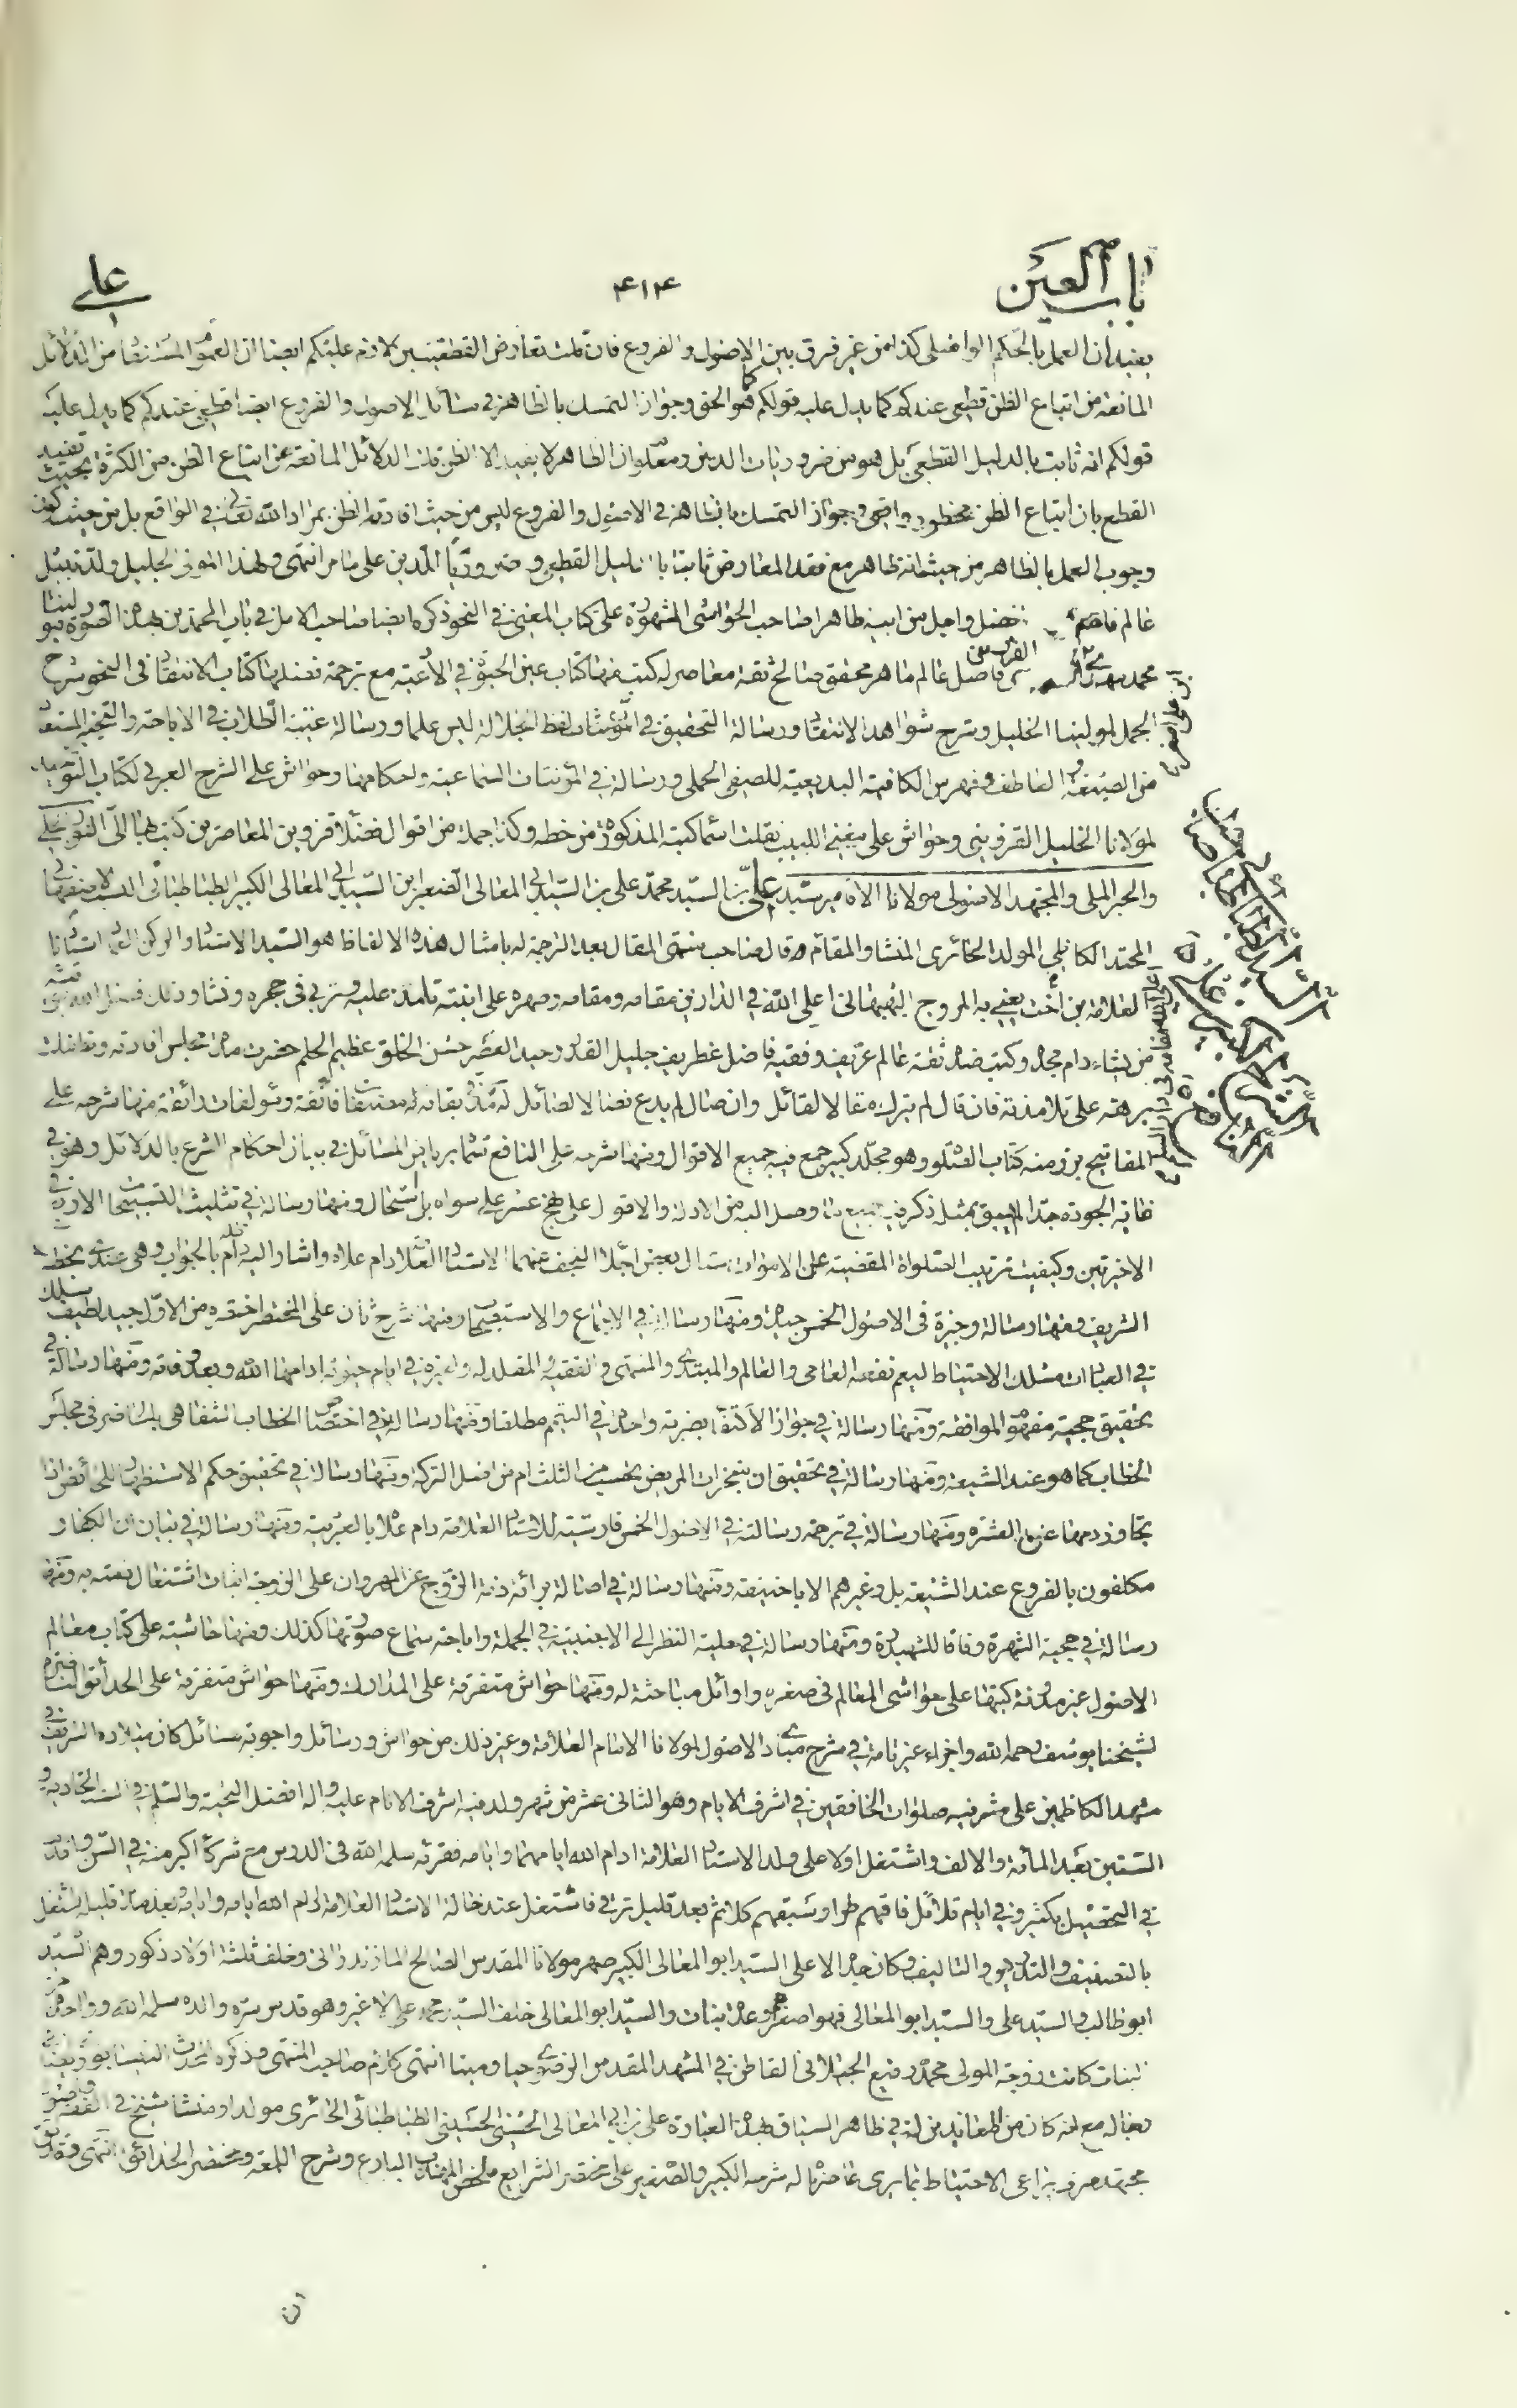 باب العين
۴۱۴
علي
يفيد ان العمل بالحكم الواصلى كذا من غير فرق بين الاصول والفروع فان قلت تعارض القطعيين لازم عليكم ايضا لان العموم المستفاد من الدلائل
المانعة من اتباع الظن قطعى عندكم كما يدل عليه قولكم هو الحق وجواز التمسك بالظاهر في مسائل الاصول والفروع ايضا قطعى عندكم كما يدل عليه
قولكم انه ثابت بالدليل القطعى بل هو من ضروريات الدين ومعلوم ان الظاهر لا يفيد الا الظن قلت الدلائل المانعة عن اتباع الظن من الكثرة بحيث تفيد
القطع بان اتباع الظن محظور واقعى وجواز التمسك بالظاهر في الاصول والفروع ليس من حيث افادته الظن بمراد الله تعالى في الواقع بل من حيث كون
وجوب العمل بالظاهر من حيث انه ظاهر مع فقد المعارض ثابتا بالدليل القطعى وضروريا للدين على ما مر انتهى ولهذا المولى الجليل ولد نبيل
عالم فاضل افضل واجل من ابيه ظاهرا صاحب الحواشى المشهورة على كتاب المغنى في النحو ذكره ايضا صاحب الامل في باب المحمدين بهذه الصورة مولينا
محمد مهدى القزوينى فاضل عالم ماهر محقق صالح ثقة معاصر له كتب منها كتاب عين الحيوة في الادعية مع ترجمة فضلها كتاب الانتقاد في النحو شرح
الجمل لمولينا الخليل وشرح شواهد الانتقاد ورسالة التحقيق في المؤنثات لفظ الجلالة ليس علما ورسالة غنية الطلاب في الاباحة والتخيير المستعملا
من الصيغة العاطفة وفهرس الكافية البديعية للصفى الحلى ورسالة في المؤنثات السماعية واحكامها وحواش على الشرح العربى لكتاب التوحيد
لمولانا الخليل القزوينى وحواش على مغنى اللبيب نقلت اسماء كتبه المذكورة من خطه وكذا جملة من اقوال فضلاء قزوين المعاصرين كتب بها الى
والحبر الملى والمجتهد الاصولى مولانا الاقا مير سيد على بن السيد محمد على بن السيد ابى المعالى الصغير ابن السيد ابى المعالى الكبير الطباطبائى
المحتد الكاظمى المولد الحائرى المنشاء والمقام قال صاحب منتهى المقال بعد الترجمة له بامثال هذه الالفاظ هو السيد الاستاد والركن العماد
العلامة ابن اخت يعنى به المروج البهبهانى اعلى الله في الدارين مقامه ومقامه وصهره على ابنته تلمذ عليه وتربى في حجره ونشأ وذلك فضل الله يؤتيه
من يشاء دام مجده وكبت ضده ثقة عالم عريف وفقيه فاضل غطريف جليل القدر وحيد العصر حسن الخلق عظيم الحلم حضرت مدة مجلس افادته وتطفلت
برهة على تلامذته فان قال لم يترك مقالا لقائل وان صال لم يدع نصالا لصائل له مد بقائه مصنفات فائقة ومؤلفات رائقة منها شرحه على
المفاتيح برز منه كتاب الصلوة وهو مجلد كبير جمع فيه جميع الاقوال ومنها شرحه على النافع سماه برياض المسائل في بيان احكام الشرع بالدلائل وهو في
غاية الجودة جدا لم يسبق بمثله ذكر فيه جميع ما وصل اليه من الادلة والاقوال على نهج عسر على سواه بل استحال ومنها رسالة في تثليث التسبيحات الاربع في
الاخيرتين وكيفية ترتيب الصلوة المقضية على الاموات سال بعض اجلاء النجف عنهما الاستاد العلامة دام علاه واشار اليه دام ظله بالجواب وهى عندى بخطه
الشريف ومنها رسالة وجيزة في الاصول الخمس جيدة ومنها رسالة في الاجماع والاستصحاب ومنها شرح ثان على المختصر اختصره من الاول جيد لطيف سلك
في العبادات مسلك الاحتياط ليعم نفعه العامى والعالم والمبتدى والمنتهى والفقيه والمقلد له ولغيره في ايام حيوته ادامها الله وبعد وفاته ومنها رسالة في
تحقيق حجية مفهوم الموافقة ومنها رسالة في جواز الاكتفاء بضربة واحدة في التيمم مطلقا ومنها رسالة في اختصاص الخطاب الشفاهى بالحاضر في مجلس
الخطاب كما هو عند الشيعة ومنها رسالة في تحقيق ان منجزات المريض تحسب من الثلث ام من اصل التركة ومنها رسالة في تحقيق حكم الاستظهار للحائض اذا
تجاوز دمها عن العشرة ومنها رسالة في ترجمة رسالته في الاصول الخمس فارسية للاستاد العلامة دام علاه بالعربية ومنها رسالة في بيان ان الكفار
مكلفون بالفروع عند الشيعة بل وغيرهم الا ابا حنيفة ومنها رسالة في اصالة برائة ذمة الزوج عن المهر وان على الزوجة اثبات اشتغال ذمته به ومنها
رسالة في حجية الشهرة وفاقا للشهيد ره ومنها رسالة في حلية النظر الى الاجنبية في الجملة واباحة سماع صوتها كذلك ومنها حاشية على كتاب معالم
الاصول غير مدونة كتبها على حواشى المعالم في صغره واوائل مباحثة له ومنها حواش متفرقة على المدارك ومنها حواش متفرقة على الحدائق الناضرة
لشيخنا يوسف رحمه الله واجزاء غير تامة في شرح مبادى الاصول لمولانا الامام العلامة وغير ذلك من حواش ورسائل واجوبة مسائل كان ميلاده الشريف في
مشهد الكاظمين على مشرفيه صلوات الخافقين في اشرف الايام وهو الثانى عشر من شهر ولد فيه اشرف الانام عليه واله افضل التحية والسلم في السنة الحادية و
الستين بعد المائة والالف واشتغل اولا على ولد الاستاد العلامة ادام الله ايامهما وايامه فقرنه سلمه الله في الدرس مع شركاء اكبر منه في السن واقدم
في التحصيل بكثير وفي ايام قلائل فاقهم طرا وسبقهم كلا ثم بعد قليل ترقى فاشتغل عند خاله الاستاد العلامة ادام الله ايامه وايامه وبعد مدة قليلة اشتغل
بالتصنيف والتدريس والتاليف وكان جده الاعلى السيد ابو المعالى الكبير صهر مولانا المقدس الصالح المازندرانى وخلف ثلثة اولاد ذكور وهم السيد
ابو طالب والسيد على والسيد ابو المعالى وهو اصغرهم وعدة بنات والسيد ابو المعالى خلف السيد محمد على لا غير وهو قدس سره والده سلمه الله وواحدة من
البنات كانت زوجة المولى محمد رفيع الجيلانى القاطن في المشهد المقدس الرضوى حيا وميتا انتهى كلام صاحب المنتهى وذكره المحدث النيسابورى ايضا في
رجاله مع انه كان من المعاندين له في ظاهر السياق بهذه العبارة على بن ابى المعالى الحسنى الحسينى الطباطبائى الحائرى مولدا ومنشأ شيخ في الفقه واصوله
مجتهد صرف يراعى الاحتياط بما يرى عاصرناه له شرحه الكبير والصغير على مختصر الشرايع ملخص المهذب البارع وشرح اللمعة ومختصر الحدائق انتهى